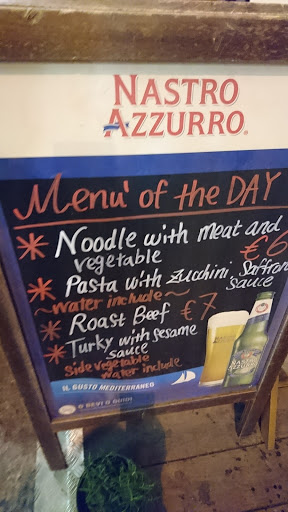 NASTRO
AZZURRO
Menu' of the DAY
* Noodle with meat and
vegetable €6
* Pasta with zucchini Saffron
sauce
~water include~
* Roast Beef €7
* Turky with sesame
sauce
Side vegetable
water include
IL GUSTO MEDITERRANEO
NASTRO